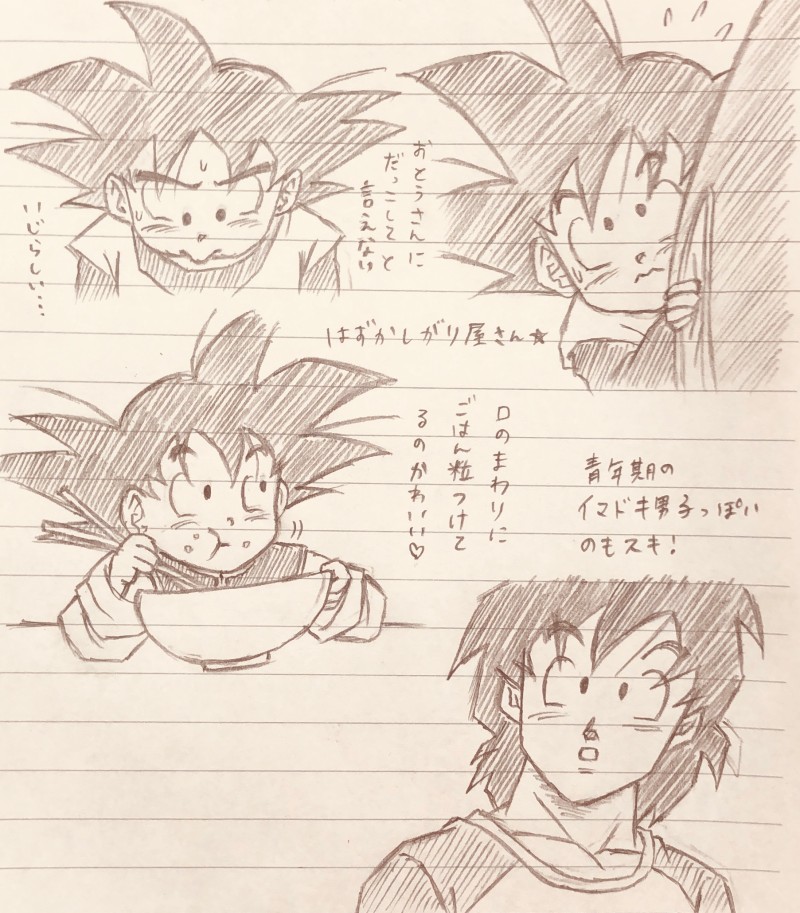 おとうさんに
だっこしてと
言えない
いじらしい…
はずかしがり屋さん☆
口のまわりに
ごはん粒つけて
るのかわいい♡
青年期の
イマドキ男子っぽい
のもスキ!